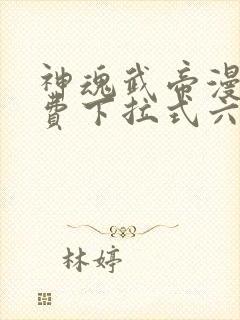 神魂武帝漫
费下拉式六
林婷